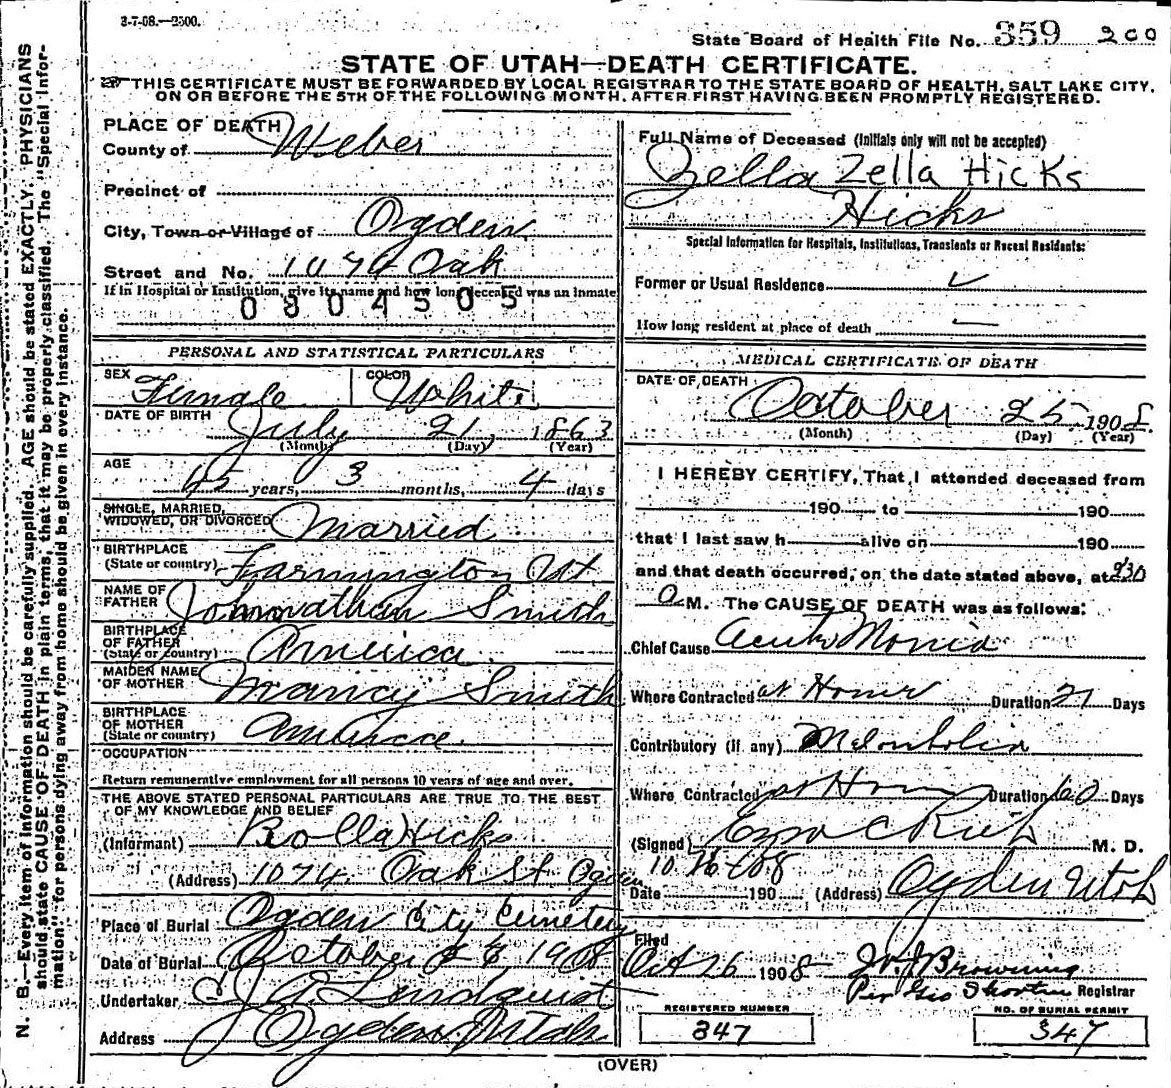 3-7-08.—2500.
State Board of Health File No. 359 200
STATE OF UTAH—DEATH CERTIFICATE.
THIS CERTIFICATE MUST BE FORWARDED BY LOCAL REGISTRAR TO THE STATE BOARD OF HEALTH, SALT LAKE CITY,
ON OR BEFORE THE 5TH OF THE FOLLOWING MONTH, AFTER FIRST HAVING BEEN PROMPTLY REGISTERED.
N. B.—Every item of information should be carefully supplied. AGE should be stated EXACTLY. PHYSICIANS
should state CAUSE OF DEATH in plain terms, that it may be properly classified. The "Special Infor-
mation" for persons dying away from home should be given in every instance.
PLACE OF DEATH
County of Weber
Precinct of
City, Town or Village of Ogden
Street and No. 1074 Oak
If in Hospital or Institution, give its name and how long deceased was an inmate
0804505
PERSONAL AND STATISTICAL PARTICULARS
SEX Female COLOR White
DATE OF BIRTH July 21 1863
(Month) (Day) (Year)
AGE 45 years, 3 months, 4 days
SINGLE, MARRIED,
WIDOWED, OR DIVORCED Married
BIRTHPLACE
(State or country) Farmington Ut.
NAME OF
FATHER Johnvathan Smith
BIRTHPLACE
OF FATHER
(State or country) America
MAIDEN NAME
OF MOTHER Nancy Smith
BIRTHPLACE
OF MOTHER
(State or country) America
OCCUPATION
Return remunerative employment for all persons 10 years of age and over.
THE ABOVE STATED PERSONAL PARTICULARS ARE TRUE TO THE BEST
OF MY KNOWLEDGE AND BELIEF
(Informant) Rolla Hicks
(Address) 1074 Oak St Ogden
Place of Burial Ogden City Cemetery
Date of Burial October 1908
Undertaker Lindquist
Address Ogden Utah
Full Name of Deceased (Initials only will not be accepted)
Zella Zella Hicks
Hicks
Special Information for Hospitals, Institutions, Transients or Recent Residents:
Former or Usual Residence
How long resident at place of death
MEDICAL CERTIFICATE OF DEATH
DATE OF DEATH October 25 1908.
(Month) (Day) (Year)
I HEREBY CERTIFY, That I attended deceased from
190 to 190
that I last saw h alive on 190
and that death occurred, on the date stated above, at 930
a M. The CAUSE OF DEATH was as follows:
Chief Cause Acute Mania
Where Contracted at Home Duration 21 Days
Contributory (if any)
Where Contracted at Home Duration 60 Days
(Signed) Ezra C Rich M. D.
Date 190 (Address) Ogden Utah
Filed
Oct 26 1908 Browning
Per Geo Shorten Registrar
REGISTERED NUMBER
347
NO. OF BURIAL PERMIT
347
(OVER)